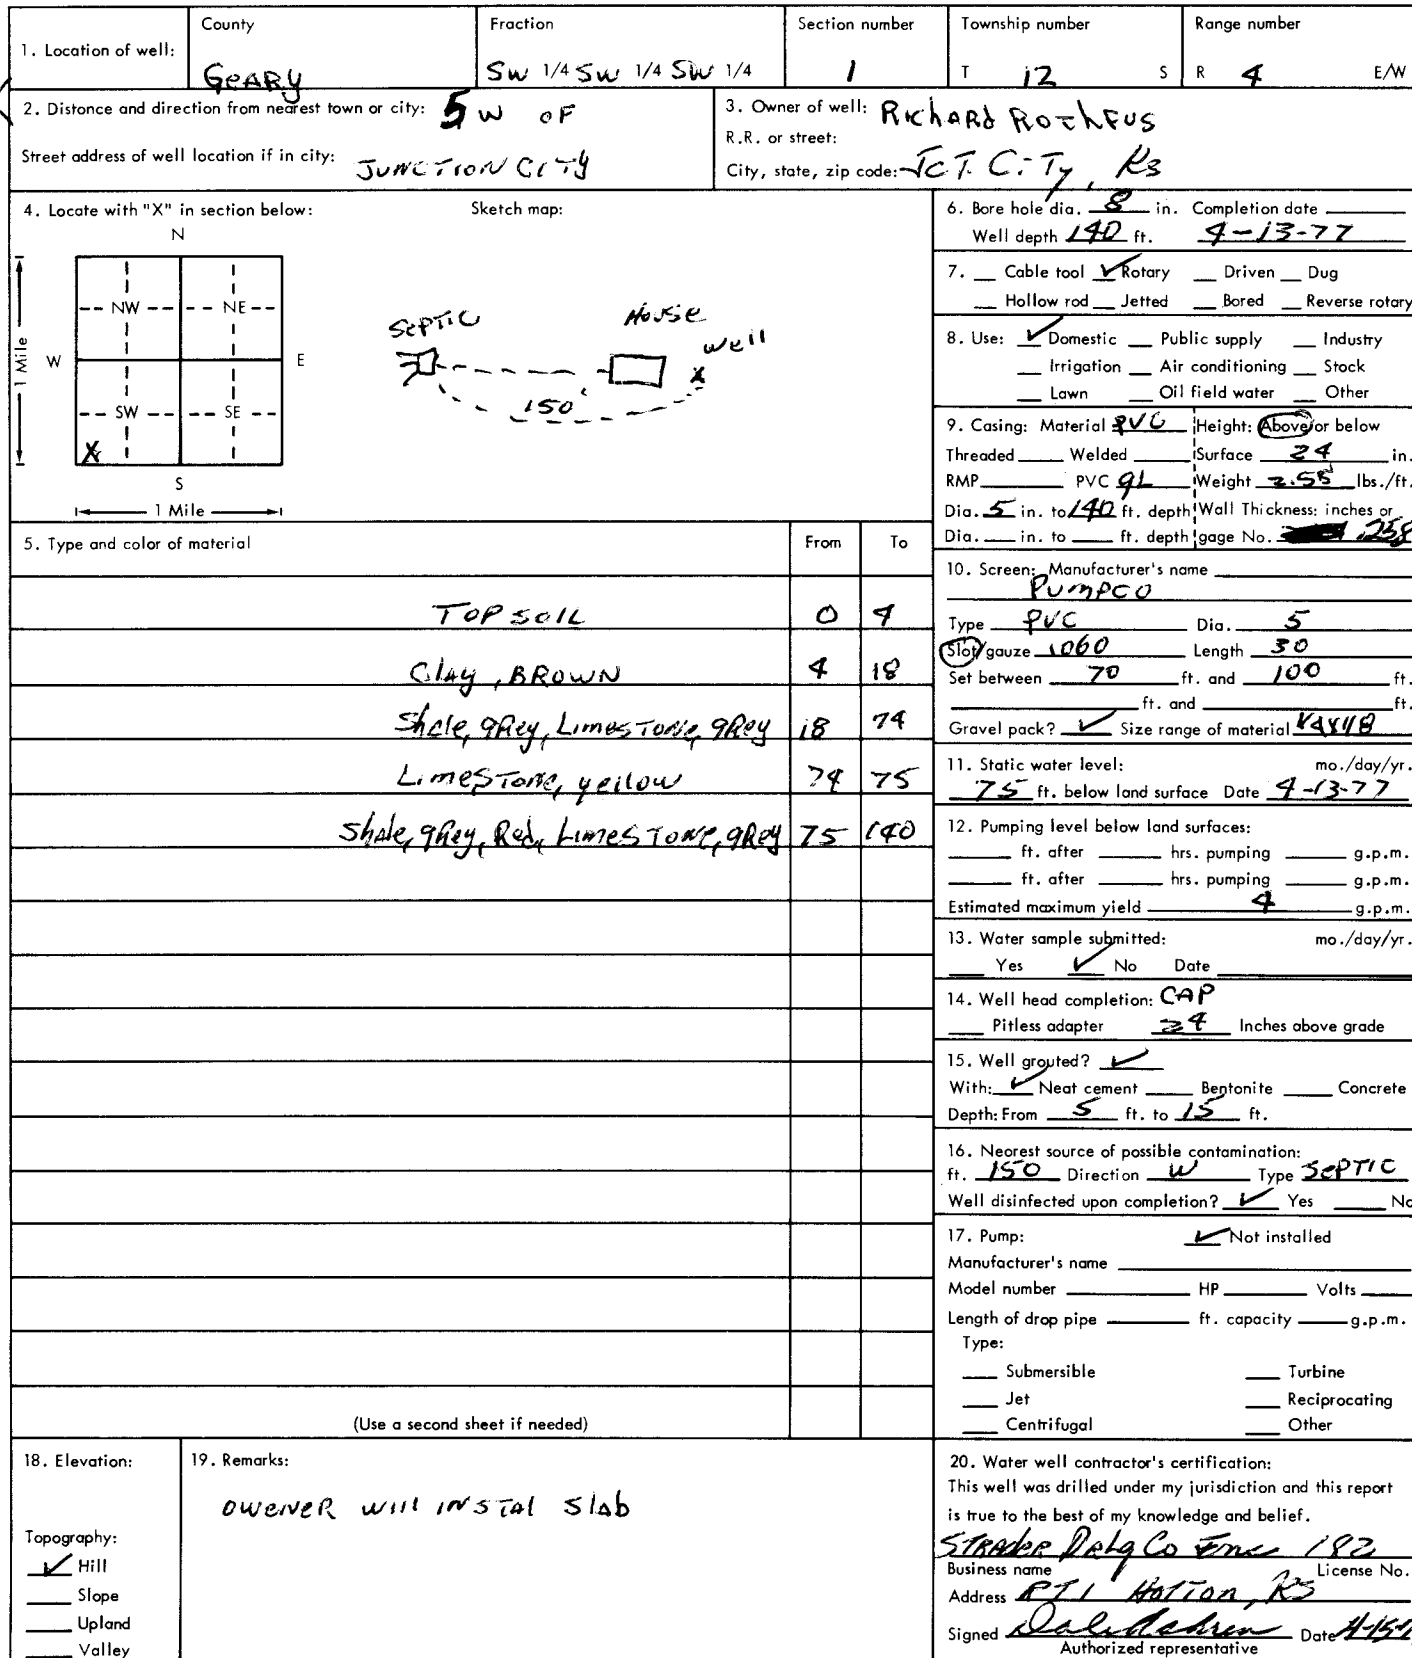 1. Location of well:
County
GeARY
Fraction
SW 1/4 SW 1/4 SW 1/4
Section number
1
Township number
T 12 S
Range number
R 4 E/W
2. Distonce and direction from nearest town or city: 5 W OF
Street address of well location if in city: JUNCTION CITY
3. Owner of well: RIChARd ROThFUS
R.R. or street:
City, state, zip code: JCT. CiTy, Ks
4. Locate with "X" in section below:
Sketch map:
N
NW NE
W E
SW SE
X
S
1 Mile
1 Mile
SePTIC
House
well
X
150'
5. Type and color of material From To
TOP SOIL 0 4
Clay, BROWN 4 18
Shale, gRey, LimesTone, gRey 18 74
LimesTone, yellow 74 75
Shale, gRey, Red, LimesTone, gRey 75 140
(Use a second sheet if needed)
6. Bore hole dia. 8 in. Completion date
Well depth 140 ft. 4-13-77
7. Cable tool ✓ Rotary Driven Dug
Hollow rod Jetted Bored Reverse rotary
8. Use: ✓ Domestic Public supply Industry
Irrigation Air conditioning Stock
Lawn Oil field water Other
9. Casing: Material PVC Height: Above or below
Threaded Welded Surface 24 in.
RMP PVC gL Weight 2.55 lbs./ft.
Dia. 5 in. to 140 ft. depth Wall Thickness: inches or
Dia. in. to ft. depth gage No. .258
10. Screen: Manufacturer's name
PumPCO
Type PVC Dia. 5
Slot/gauze .060 Length 30
Set between 70 ft. and 100 ft.
ft. and ft.
Gravel pack? ✓ Size range of material
11. Static water level: mo./day/yr.
75 ft. below land surface Date 4-13-77
12. Pumping level below land surfaces:
ft. after hrs. pumping g.p.m.
ft. after hrs. pumping g.p.m.
Estimated maximum yield 4 g.p.m.
13. Water sample submitted: mo./day/yr.
Yes ✓ No Date
14. Well head completion: CAP
Pitless adapter 24 Inches above grade
15. Well grouted? ✓
With: ✓ Neat cement Bentonite Concrete
Depth: From 5 ft. to 15 ft.
16. Neorest source of possible contamination:
ft. 150 Direction W Type SePTIC
Well disinfected upon completion? ✓ Yes No
17. Pump: ✓ Not installed
Manufacturer's name
Model number HP Volts
Length of drop pipe ft. capacity g.p.m.
Type:
Submersible Turbine
Jet Reciprocating
Centrifugal Other
18. Elevation:
Topography:
✓ Hill
Slope
Upland
Valley
19. Remarks:
OWENER will INSTAl Slab
20. Water well contractor's certification:
This well was drilled under my jurisdiction and this report
is true to the best of my knowledge and belief.
STRADER DRLg Co Inc 182
Business name License No.
Address RT 1 HOLTON, KS
Signed Date
Authorized representative